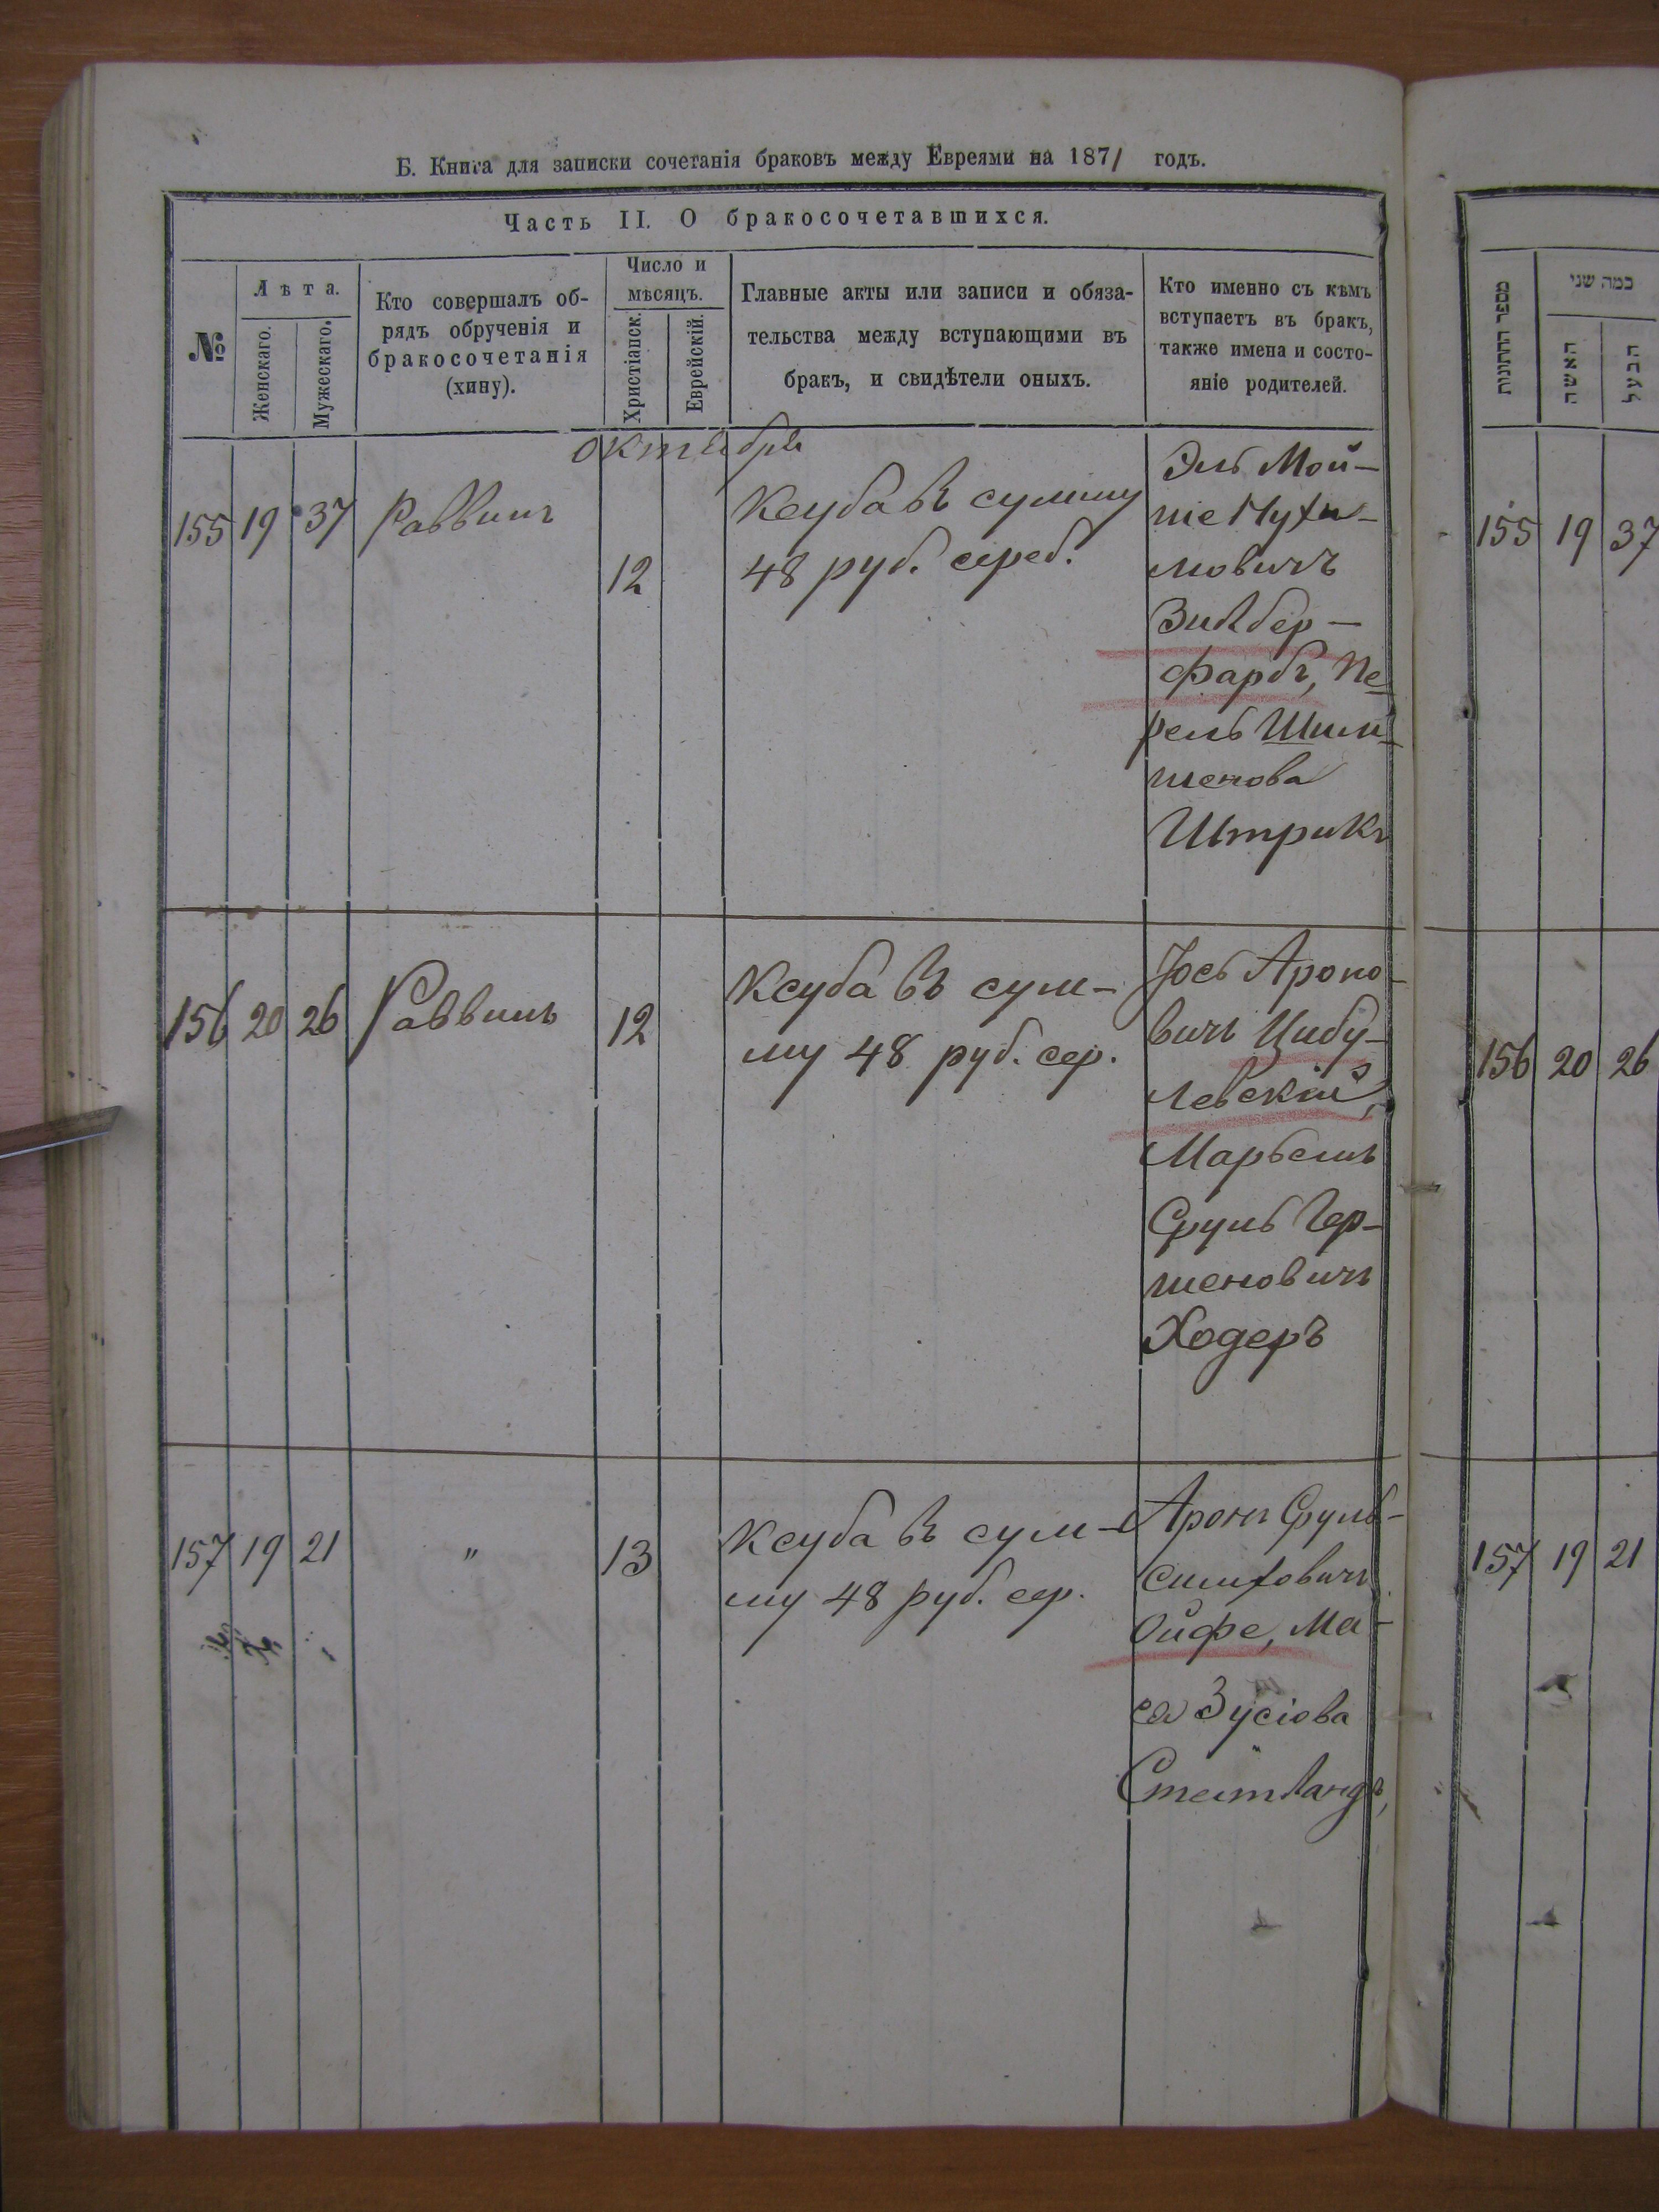 Б. Книга для записки сочетанія браковъ между Евреями на 1871 годъ.
Часть II. О бракосочетавшихся.
№
Лѣта.
Женскаго.
Мужескаго.
Кто совершалъ об-
рядъ обрученія и
бракосочетанія
(хину).
Число и
мѣсяцъ.
Христіанск.
Еврейскій.
Главные акты или записи и обяза-
тельства между вступающими въ
бракъ, и свидѣтели оныхъ.
Кто именно съ кѣмъ
вступаетъ въ бракъ,
также имена и состо-
яніе родителей.
октября
155 19 37 Раввинъ
12
Ксуба въ сумму
48 руб. сереб.
Эль Мой-
ше Нухи-
мовичъ
Зильбер-
фарбъ, Пе-
рель Шим-
шенова
Штрикъ
156 20 26 Раввинъ 12
Ксуба въ сум-
му 48 руб. сер.
Іось Ароно-
вичъ Цибу-
левскій,
Марьемъ
Сруль Гер-
шеновичъ
Ходеръ
157 19 21 " 13
Ксуба въ сум-
му 48 руб. сер.
Аронъ Сруль-
симховичъ
Ойфе, Ма-
ся Зусіова
מספר החתונות
כמה שני
האשה
הבעל
155 19 37
156 20 26
157 19 21